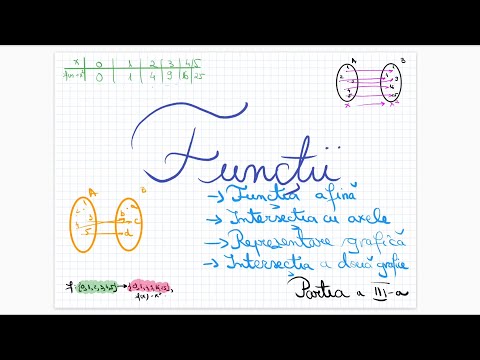 x 0 1 2 3 4 5
f(x)=x² 0 1 4 9 16 25
A B
Funcții
→ Funcția afină
→ Intersecția cu axele
→ Reprezentare grafică
→ Intersecția a două grafice
Partea a III-a
A B
b c
5 d